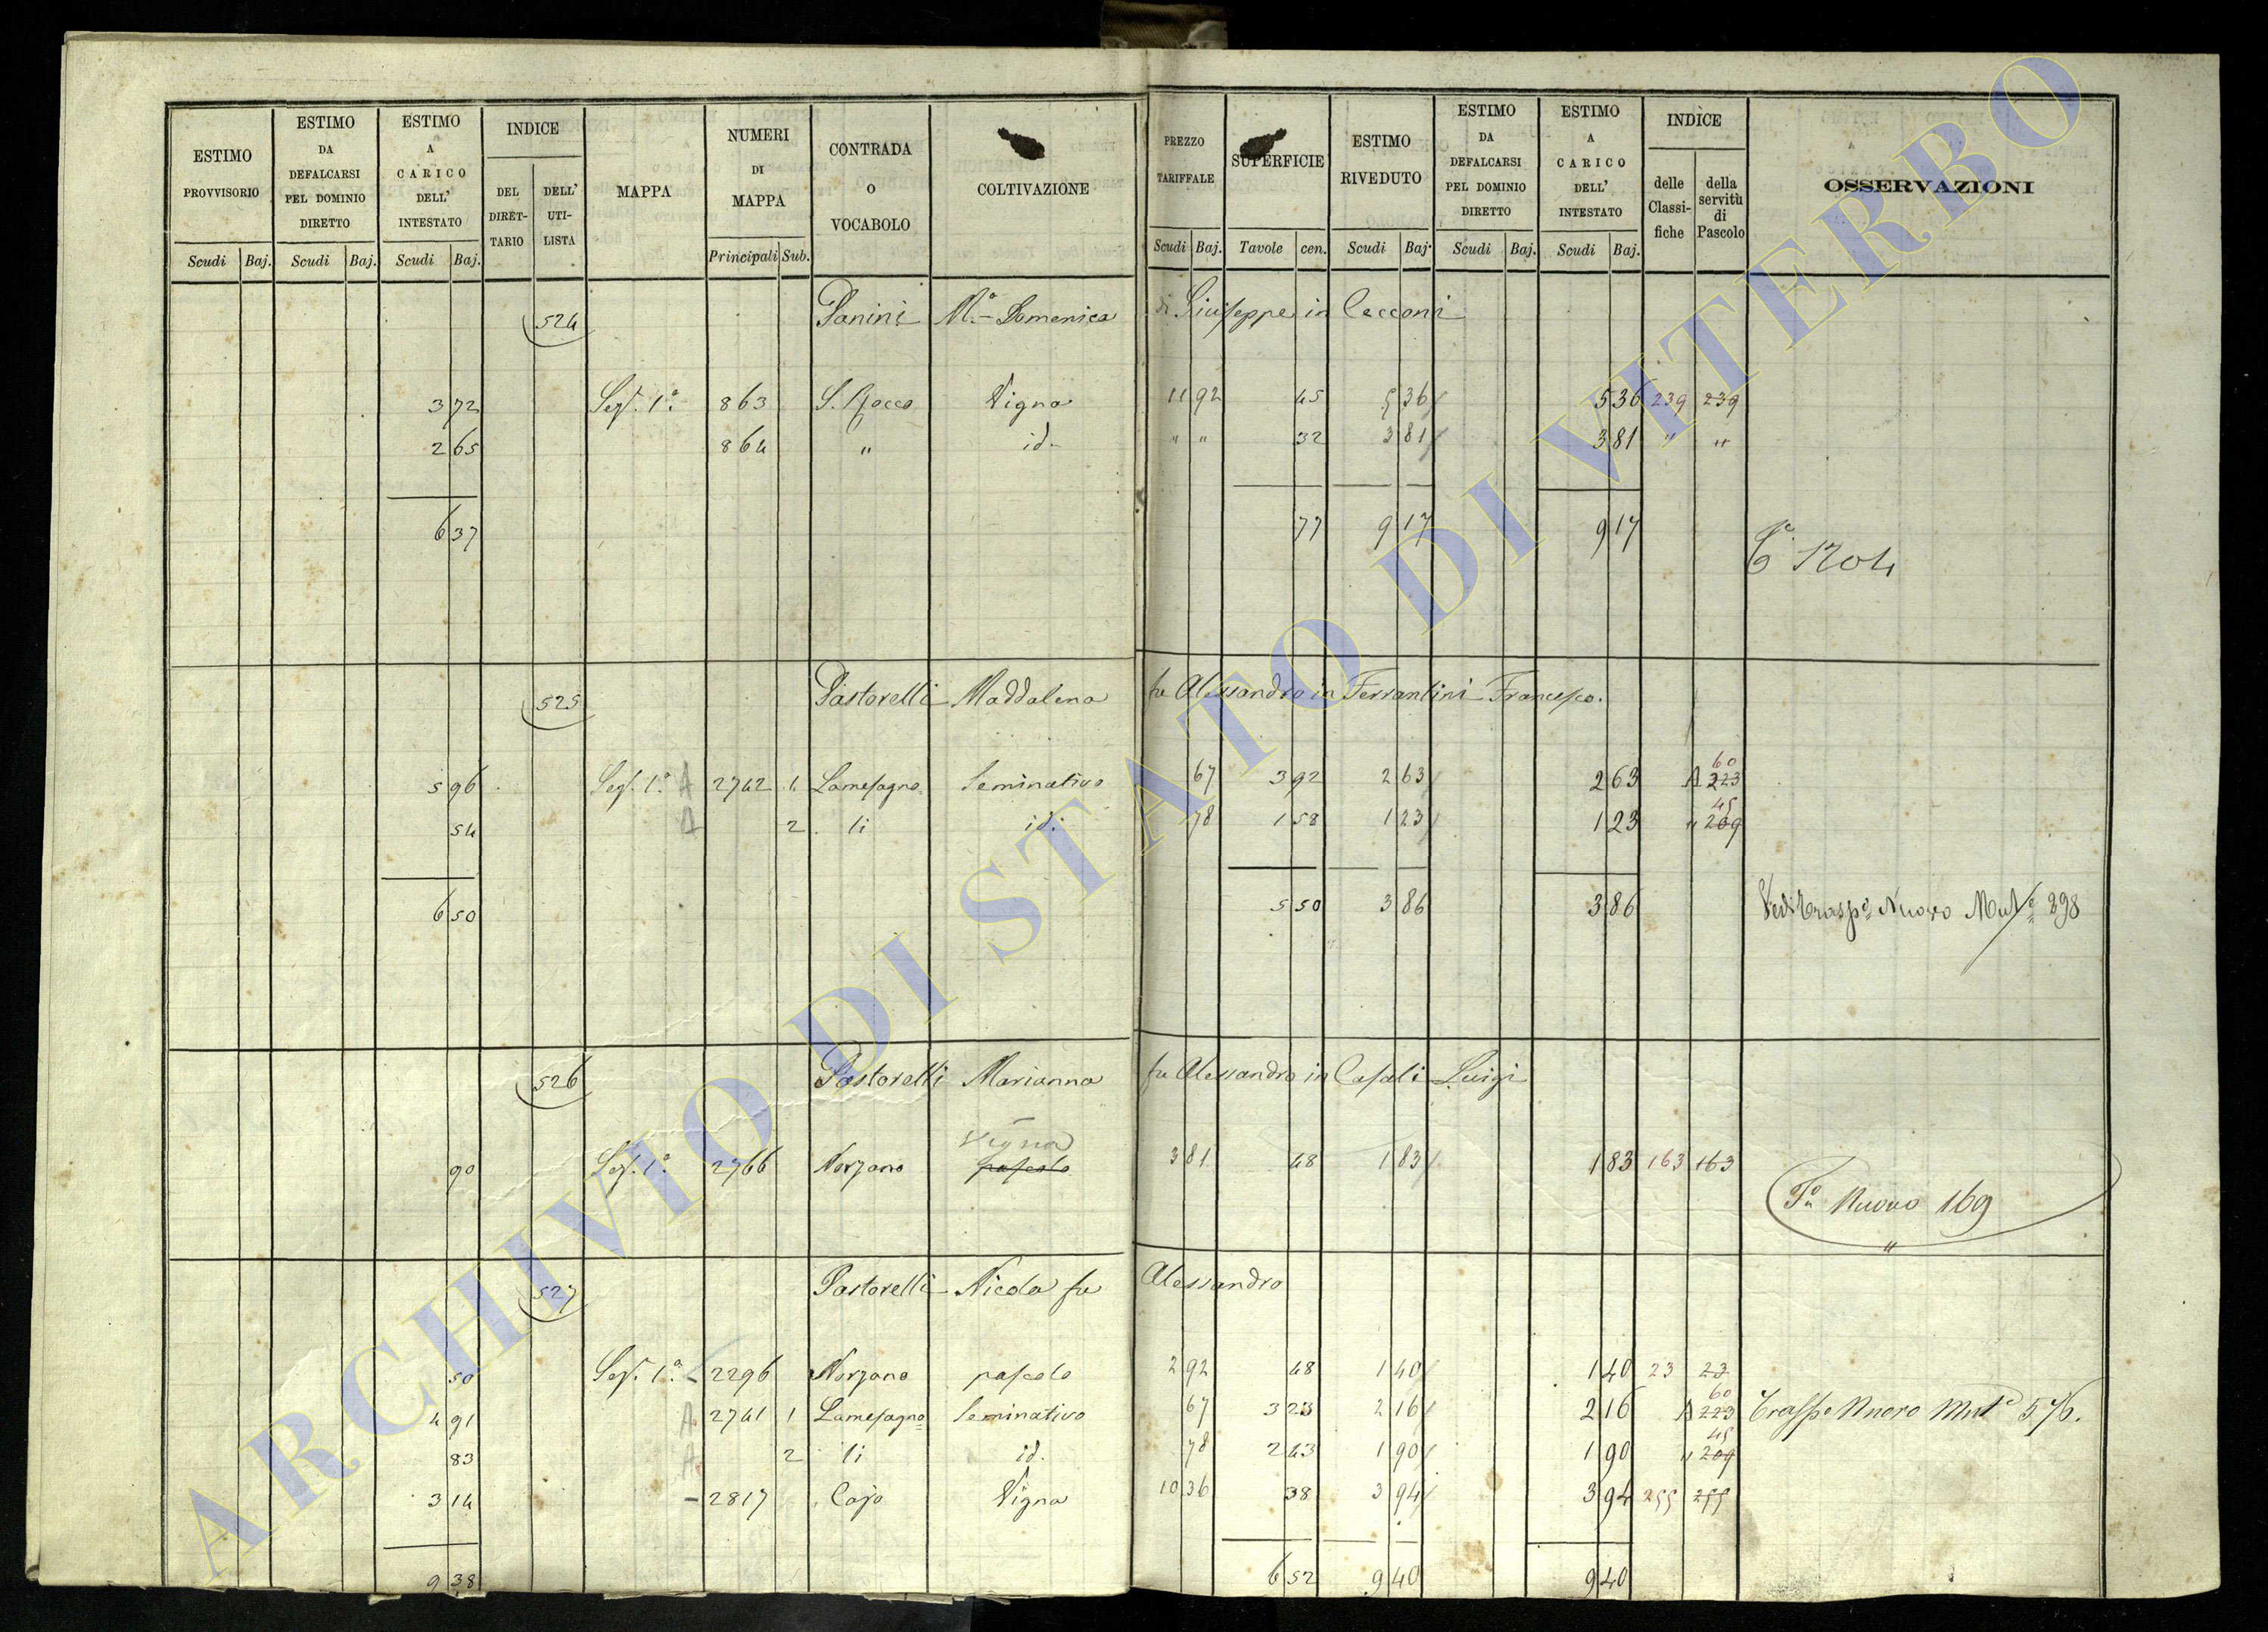 ESTIMO PROVVISORIO Scudi Baj.
ESTIMO DA DEFALCARSI PEL DOMINIO DIRETTO Scudi Baj.
ESTIMO A CARICO DELL' INTESTATO Scudi Baj.
INDICE DEL DIRETTARIO DELL' UTILISTA
MAPPA
NUMERI DI MAPPA Principali Sub.
CONTRADA O VOCABOLO
COLTIVAZIONE
PREZZO TARIFFALE Scudi Baj.
SUPERFICIE Tavole cen.
ESTIMO RIVEDUTO Scudi Baj.
ESTIMO DA DEFALCARSI PEL DOMINIO DIRETTO Scudi Baj.
ESTIMO A CARICO DELL' INTESTATO Scudi Baj.
INDICE delle Classifiche della servitù di Pascolo
OSSERVAZIONI
524 Panini Mª Domenica di Giuseppe in Cecconi
3 72 Sez. 1ª 863 S. Rocco Vigna 11 92 45 5 36 5 36 239 239
2 65 864 " id. " " 32 3 81 3 81 " "
6 37 77 9 17 9 17
1704
525 Pastorelli Maddalena fu Alessandro in Ferrantini Francesco.
5 96 Sez. 1ª A 2742 1 Lamesagna Seminativo 67 3 92 2 63 2 63 A 223 60
54 A 2 li id. 78 1 58 1 23 1 23 " 209 45
6 50 5 50 3 86 3 86 Vedi Traspº Nuovo Mutª 298
526 Pastorelli Marianna fu Alessandro in Casali Luigi
Vigna
90 Sez. 1ª 2766 Norzano pascolo 3 81 48 1 83 1 83 163 163
Tº Nuovo 169
527 Pastorelli Nicola fu Alessandro
50 Sez. 1ª 2296 Norzano pascolo 2 92 48 1 40 1 40 23 23
4 91 A 2741 1 Lamesagna Seminativo 67 3 23 2 16 2 16 A 223 60 Traspº Nuovo Mutª 576.
83 A 2 li id. 78 2 43 1 90 1 90 " 209 45
3 14 2817 Cajo Vigna 10 36 38 3 94 3 94 255 255
9 38 6 52 9 40 9 40
ARCHIVIO DI STATO DI VITERBO